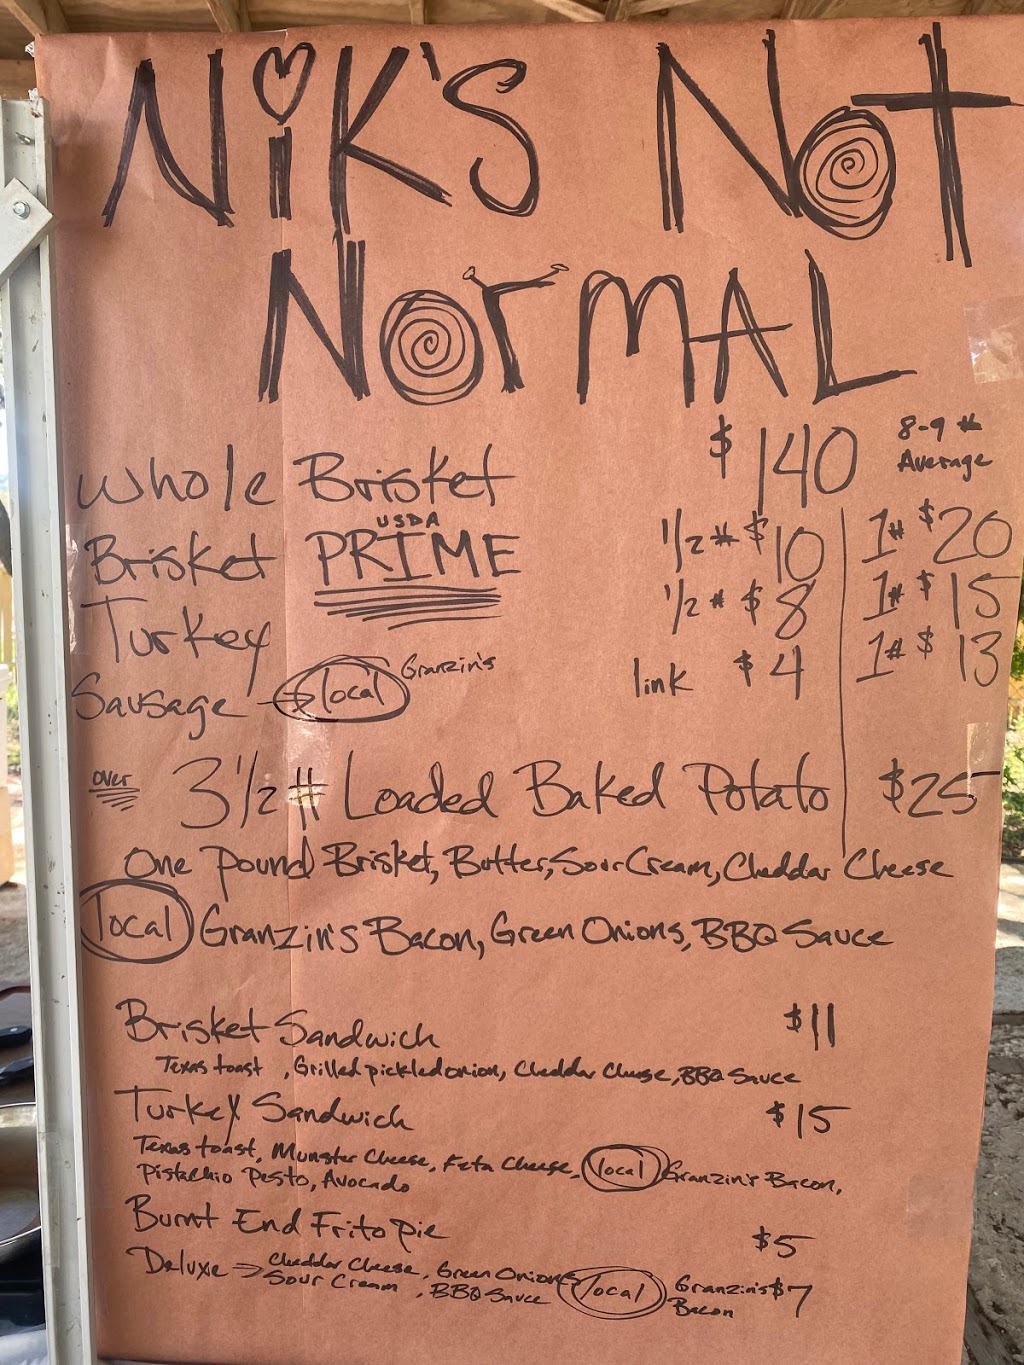 NiK'S NOT
NOrMAL
Whole Brisket $140 8-9 # Average
Brisket USDA PRIME 1/2 # $10 1# $20
Turkey 1/2 # $8 1# $15
Sausage → local Granzin's link $4 1# $13
over 3 1/2 # Loaded Baked Potato $25
One Pound Brisket, Butter, Sour Cream, Cheddar Cheese
local Granzin's Bacon, Green Onions, BBQ Sauce
Brisket Sandwich $11
Texas toast, Grilled pickled onion, Cheddar Cheese, BBQ Sauce
Turkey Sandwich $15
Texas toast, Munster Cheese, Feta Cheese, local Granzin's Bacon,
Pistachio Pesto, Avocado
Burnt End Frito Pie $5
Deluxe → Cheddar Cheese, Green Onions
Sour Cream, BBQ Sauce local Granzin's Bacon $7